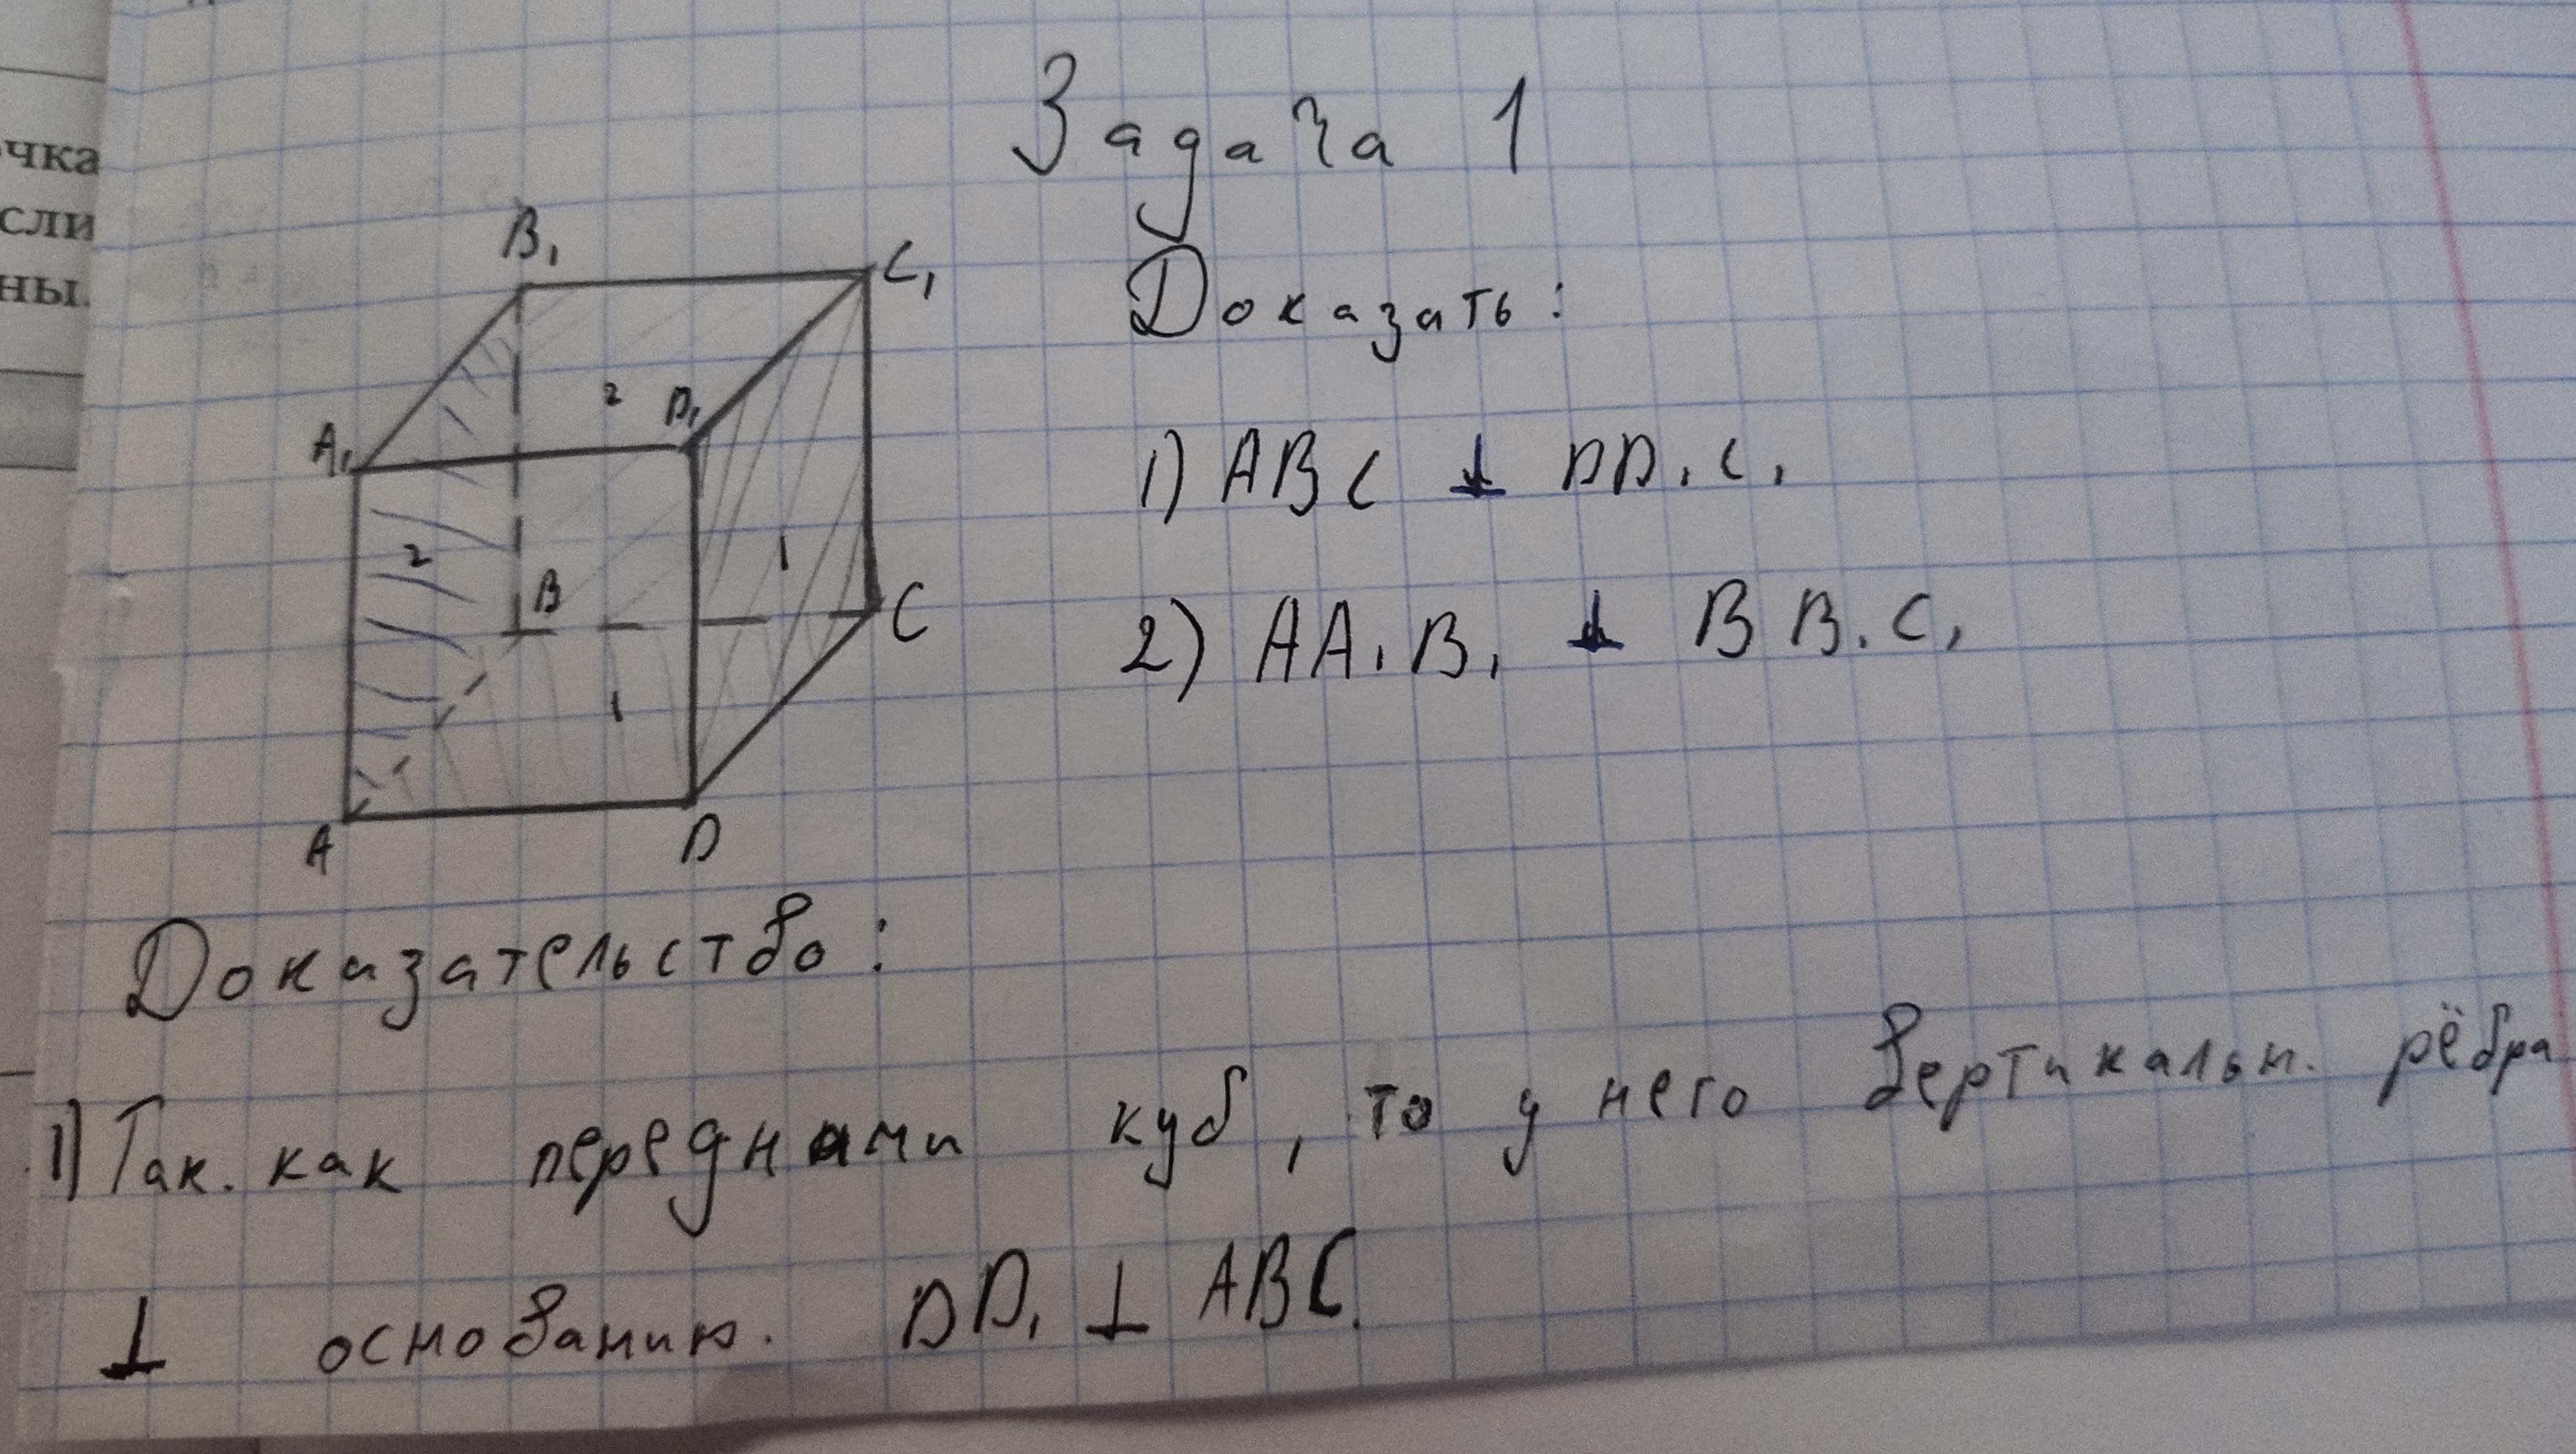 чка
сли
ны.
Задача 1
B₁
C₁
Доказать:
2
D₁
A₁
1) ABC ⊥ DD₁C₁
2
1
B
C
2) AA₁B₁ ⊥ BB₁C₁
1
A
D
Доказательство:
1) Так. как перед нами куб, то у него вертикальн. рёбра
⊥ основанию. DD₁ ⊥ ABC.